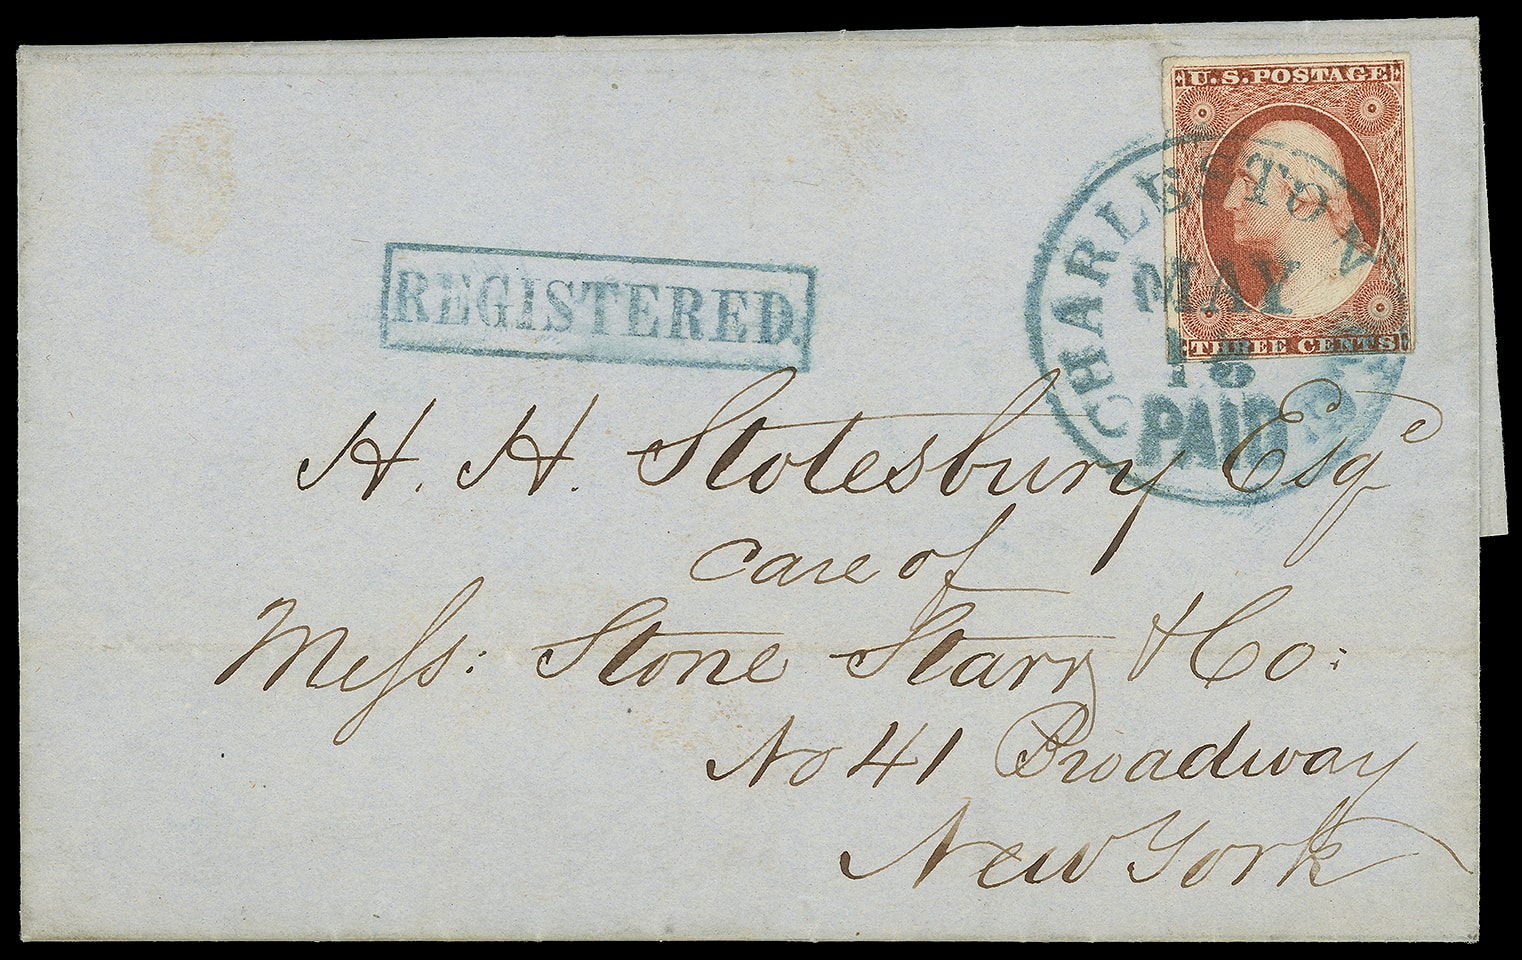 U.S. POSTAGE
THREE CENTS
CHARLESTON
MAY
PAID
REGISTERED.
H. H. Stotesbury Esqe
care of
Mess: Stone Starr & Co:
No 41 Broadway
New York